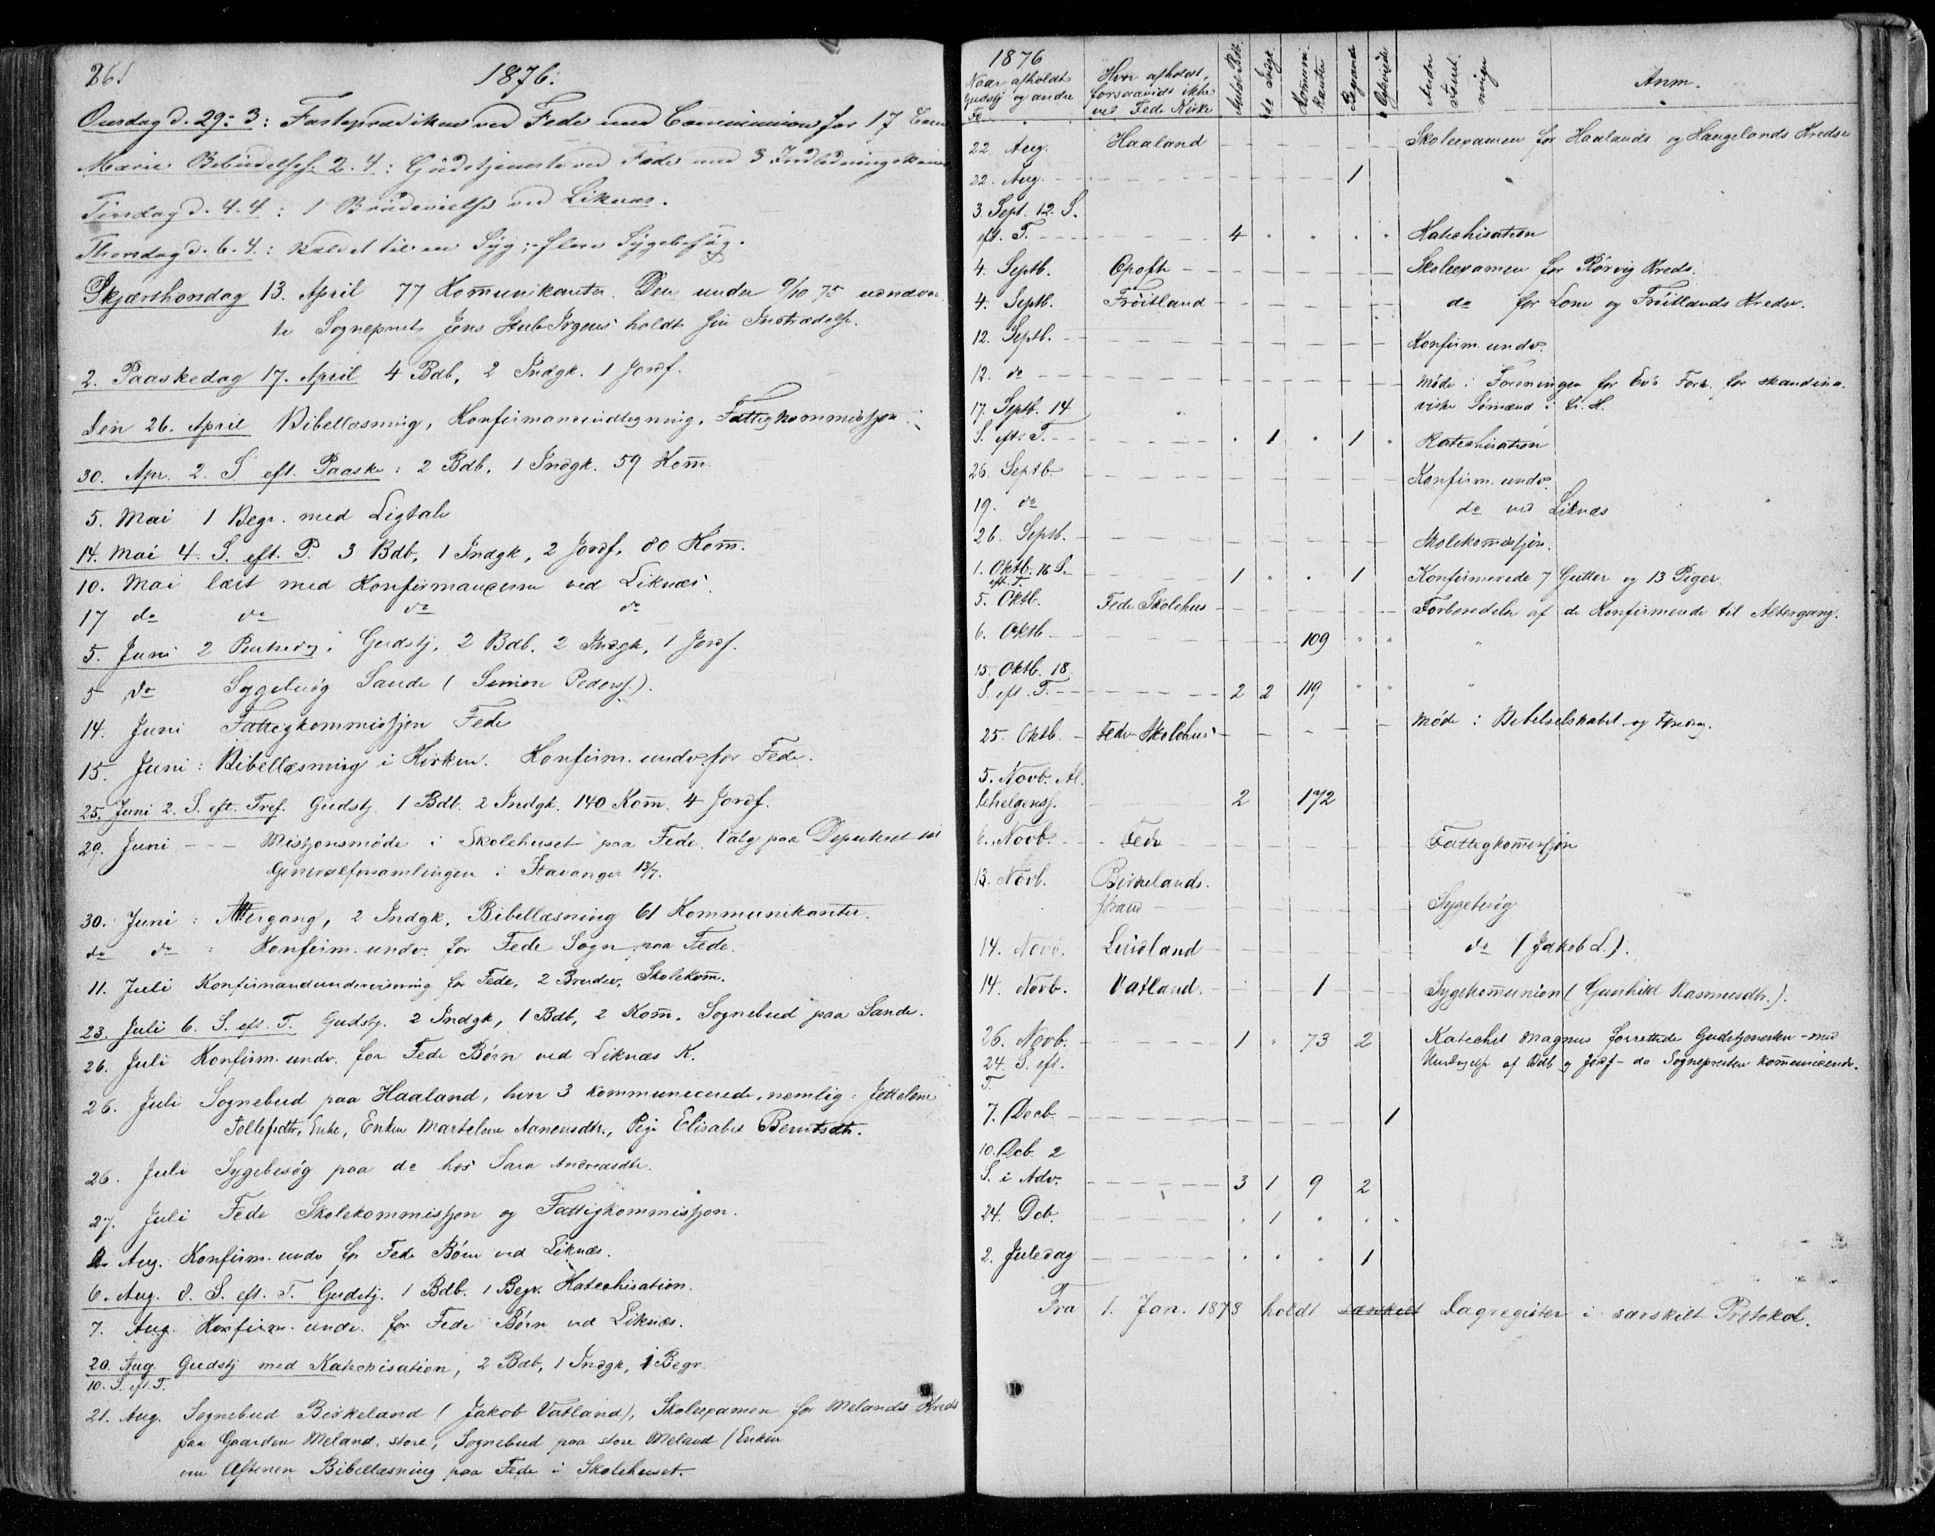 261
1876.
Onsdag d. 29: 3: Fasteprædiken ved Fede med Communion for 17 Com
Mariæ Bebudelsesf. 2. 4.: Gudstjeneste ved Fede med 3 Indledningskoner
Tirsdag d. 4. 4.: 1 Brudevielse ved Liknæs.
Thorsdag d. 6. 4.: Kaldet til en Syg: flere Sygebesøg.
Skjærthorsdag 13. April 77 Kommunikanter. Den under 9/10 75 udnævn
te Sogneprest Jens Stub Irgens holdt sin Inntrædelse.
2. Paaskedag 17. April 4 Bdb, 2 Indgk. 1 Jordf.
Den 26. April Bibellæsning, Konfirmandindtegning, Fattigkommissjon
30. Apr. 2. S eft. Paaske: 2 Bdb, 1 Indgk. 59 Kom.
5. Mai 1 Begr. med Ligtale
14. Mai 4. S. eft. P. 3 Bdb, 1 Indgk, 2 Jordf. 80 Kom.
10. Mai læst med Konfirmanderne ved Liknæs.
17 do do do do
5. Juni 2 Pintsedag, Gudstj, 2 Bdb, 2 Indgk, 1 Jordf.
5 do Sygebesøg Sande (Simon Peders.).
14. Juni Fattigkommissjon Fede
15. Juni: Bibellæsning i Kirken. Konfirm. underv. for Fede.
25. Juni 2. S. eft. Tref. Gudstj. 1 Bdb. 2 Indgk, 140 Kom. 4 Jordf.
29. Juni - - - Missjonsmøde i Skolehuset paa Fede. Valg paa Deputeret til
Generalforsamlingen i Stavanger 13/7.
30. Juni: Altergang, 2 Indgk, Bibellæsning 61 Kommunikanter.
do do : Konfirm. underv. for Fede Sogn paa Fede.
11. Juli Konfirmandundervisning for Fede, 2 Brudev, Skolekom.
23. Juli 6. S. eft. T. Gudstj. 2 Indgk, 1 Bdb, 2 Kom. Sognebud paa Sande.
26. Juli Konfirm. underv. for Fede Børn ved Liknæs K.
26. Juli Sognebud paa Haaland, hvor 3 kommunicerede, nemlig: Jekkelene
Tollefsdtr, Enke, Enken Martelene Aanensdtr., Pige Elisabet Berntsdtr.
26. Juli Sygebesøg paa do hos Sara Andreasdtr.
27. Juli Fede Skolekommissjon og Fattigkommissjon.
2. Aug. Konfirm. underv for Fede Børn ved Liknæs.
6. Aug. 8. S. eft. T. Gudstj. 1 Bdb. 1 Begr. Katechisation.
7. Aug. Konfirm. underv. for Fede Børn ved Liknæs.
20. Aug. Gudstj med Katechisation, 2 Bdb, 1 Indgk, 1 Begr.
10. S. eft. T.
21. Aug. Sognebud Birkeland (Jakob Vatland), Skoleexamen for Melands Kreds
paa Gaarden Meland, store, Sognebud paa store Meland (Enken
om Aftenen Bibellæsning paa Fede i Skolehuset.
1876
Naar afholdt Gudstj og andre F.
Hvor afholdt, forsaavidt ikke ved Fede Kirke
Antal Bdb.
do Indgk.
Kommunikanter
Begravne
Andre Forretninger
Anm.
22. Aug. Haaland Skoleexamen for Haalands og Haugelands Kredse
22. Aug. 1
3. Sept. 12. S.
eft. T. 4 Katechisation
4. Septb. Opofte Skoleexamen for Rørvig Kreds.
4. Septb. Frøitland do for Lone og Frøitlands Kredse.
12. Septb. Konfirm. underv.
12. do Møde i Foreningen for Ev's Fork. for skandina-
17. Septb. 14 viske Sømænd i fr. H.
S. eft. T. 1 1 Katechisation
26. Septb Konfirm. underv.
19. do do ved Liknæs
26. Septb. Skolekomissjon.
1. Oktb. 16 S. eft. T. 1 1 Konfirmerede 7 Gutter og 13 Piger.
5. Oktb. Fede Skolehus Forberedelse af de Konfirmerede til Altergang.
6. Oktb. 109
15. Oktb. 18.
S. eft. T. 2 2 119
25. Oktb. Fede Skolehus Møde i Bibelselskabet og Foredrag.
5. Novb. Al-
lehelgensf. 2 172
6. Novb. Fede Fattigkommissjon
13. Novb. Birkelands-
strand Sygebesøg
14. Novb. Lindland do (Jakob L.).
14. Novb. Vatland 1 Sygekommunion (Gunhild Rasmusdtr.).
26. Novb. 1 73 2 Katechet Magnus forrettede Gudstjenesten med
24. S. eft. Undtagelse af Bdb og Jordf - da Sognepresten kommunicerede.
T.
7. Decb. 1
10. Dcb. 2
S. i Adv. 3 1 9 2
24. Dcb. 1
2. Juledag 1
Fra 1. Jan. 1873 holdt særskilt Dagregister i særskilt Protokol.